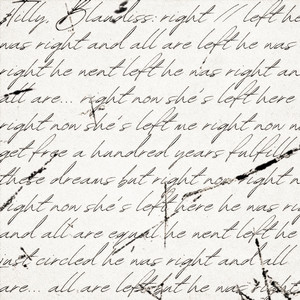 Tilly, Blandiss: right // left he
was right and all are left he was
right he went left he was right an
all are... right now she's left here
right now she's left me right now n
get free a hundred years fulfill
these dreams but right now right n
right now she's left here he was ri
and all are equal he went left he
just circled he was right and all
are... all are left but he was right